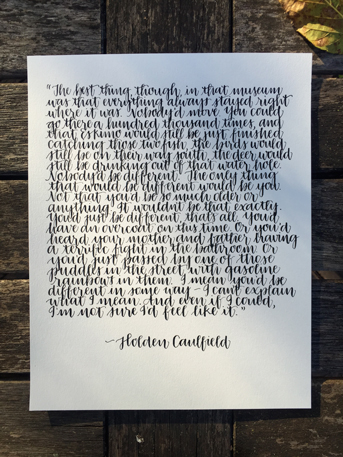 "The best thing, though, in that museum
was that everything always stayed right
where it was. Nobody'd move. You could
go there a hundred thousand times, and
that eskimo would still be just finished
catching those two fish, the birds would
still be on their way south, the deer would
still be drinking out of that water hole.
Nobody'd be different. The only thing
that would be different would be you.
Not that you'd be so much older or
anything. It wouldn't be that, exactly.
You'd just be different, that's all. You'd
have an overcoat on this time. Or you'd
heard your mother and father having
a terrific fight in the bathroom. Or
you'd just passed by one of those
puddles in the street with gasoline
rainbows in them. I mean you'd be
different in some way - I can't explain
what I mean. And even if I could,
I'm not sure I'd feel like it."
~Holden Caulfield